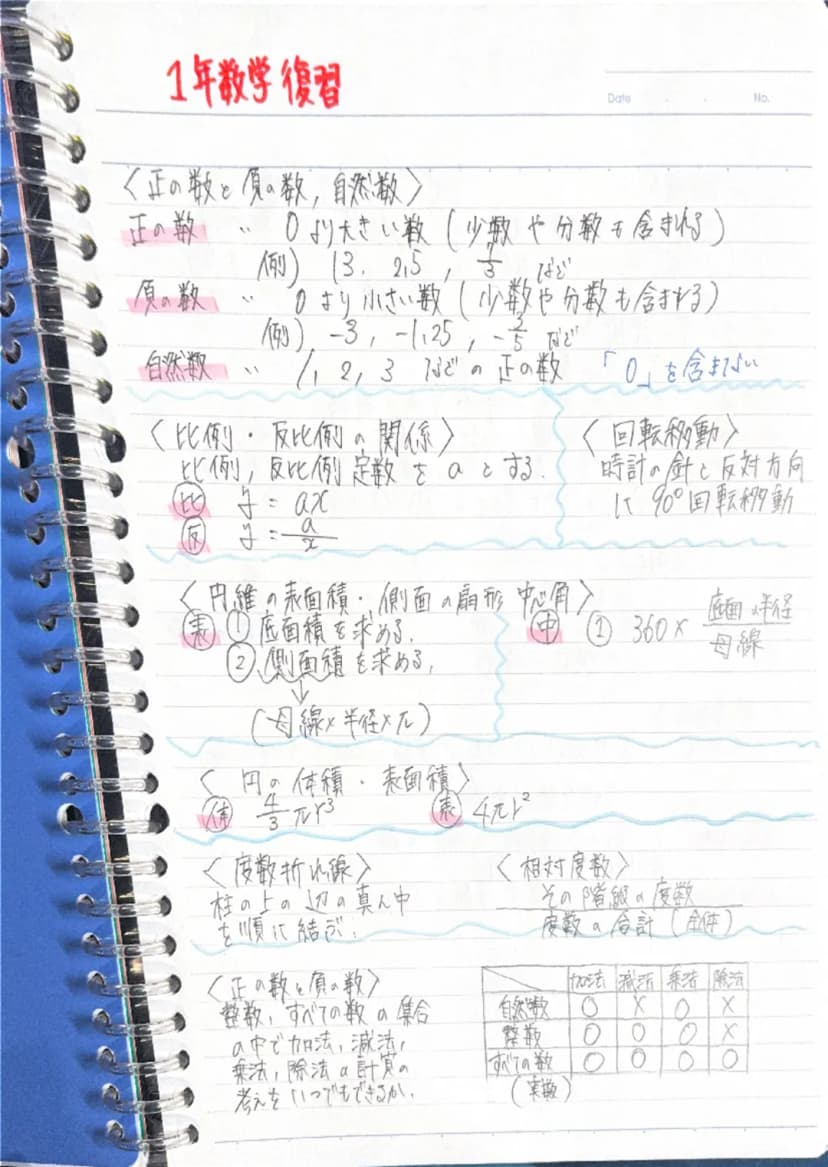 1年数学復習
Date . . No.
〈正の数と負の数,自然数〉
正の数 ‥ 0より大きい数(少数や分数も含まれる)
例) 13, 2.5, 1/3 など
負の数 ‥ 0より小さい数(少数や分数も含まれる)
例) -3, -1.25, -2/5 など
自然数 ‥ 1, 2, 3 などの正の数 「0」を含まない
〈比例・反比例の関係〉
比例,反比例定数をaとする.
比 y = ax
反 y = a/x
〈回転移動〉
時計の針と反対方向
に90°回転移動
〈円維の表面積・側面の扇形 中心角〉
表 ① 底面積を求める.
② 側面積を求める,
↓
(母線×半径×π)
中 ① 360× 底面の半径/母線
〈円の体積・表面積〉
体 4/3 πr³
表 4πr²
〈度数折れ線〉
柱の上の辺の真ん中
を順に結ぶ.
〈相対度数〉
その階級の度数
度数の合計(全体)
〈正の数と負の数〉
整数,すべての数の集合
の中で加法,減法,
乗法,除法の計算の
考えをいつでもできるか.
加法 減法 乗法 除法
自然数 ○ × ○ ×
整数 ○ ○ ○ ×
すべての数 ○ ○ ○ ○
(実数)